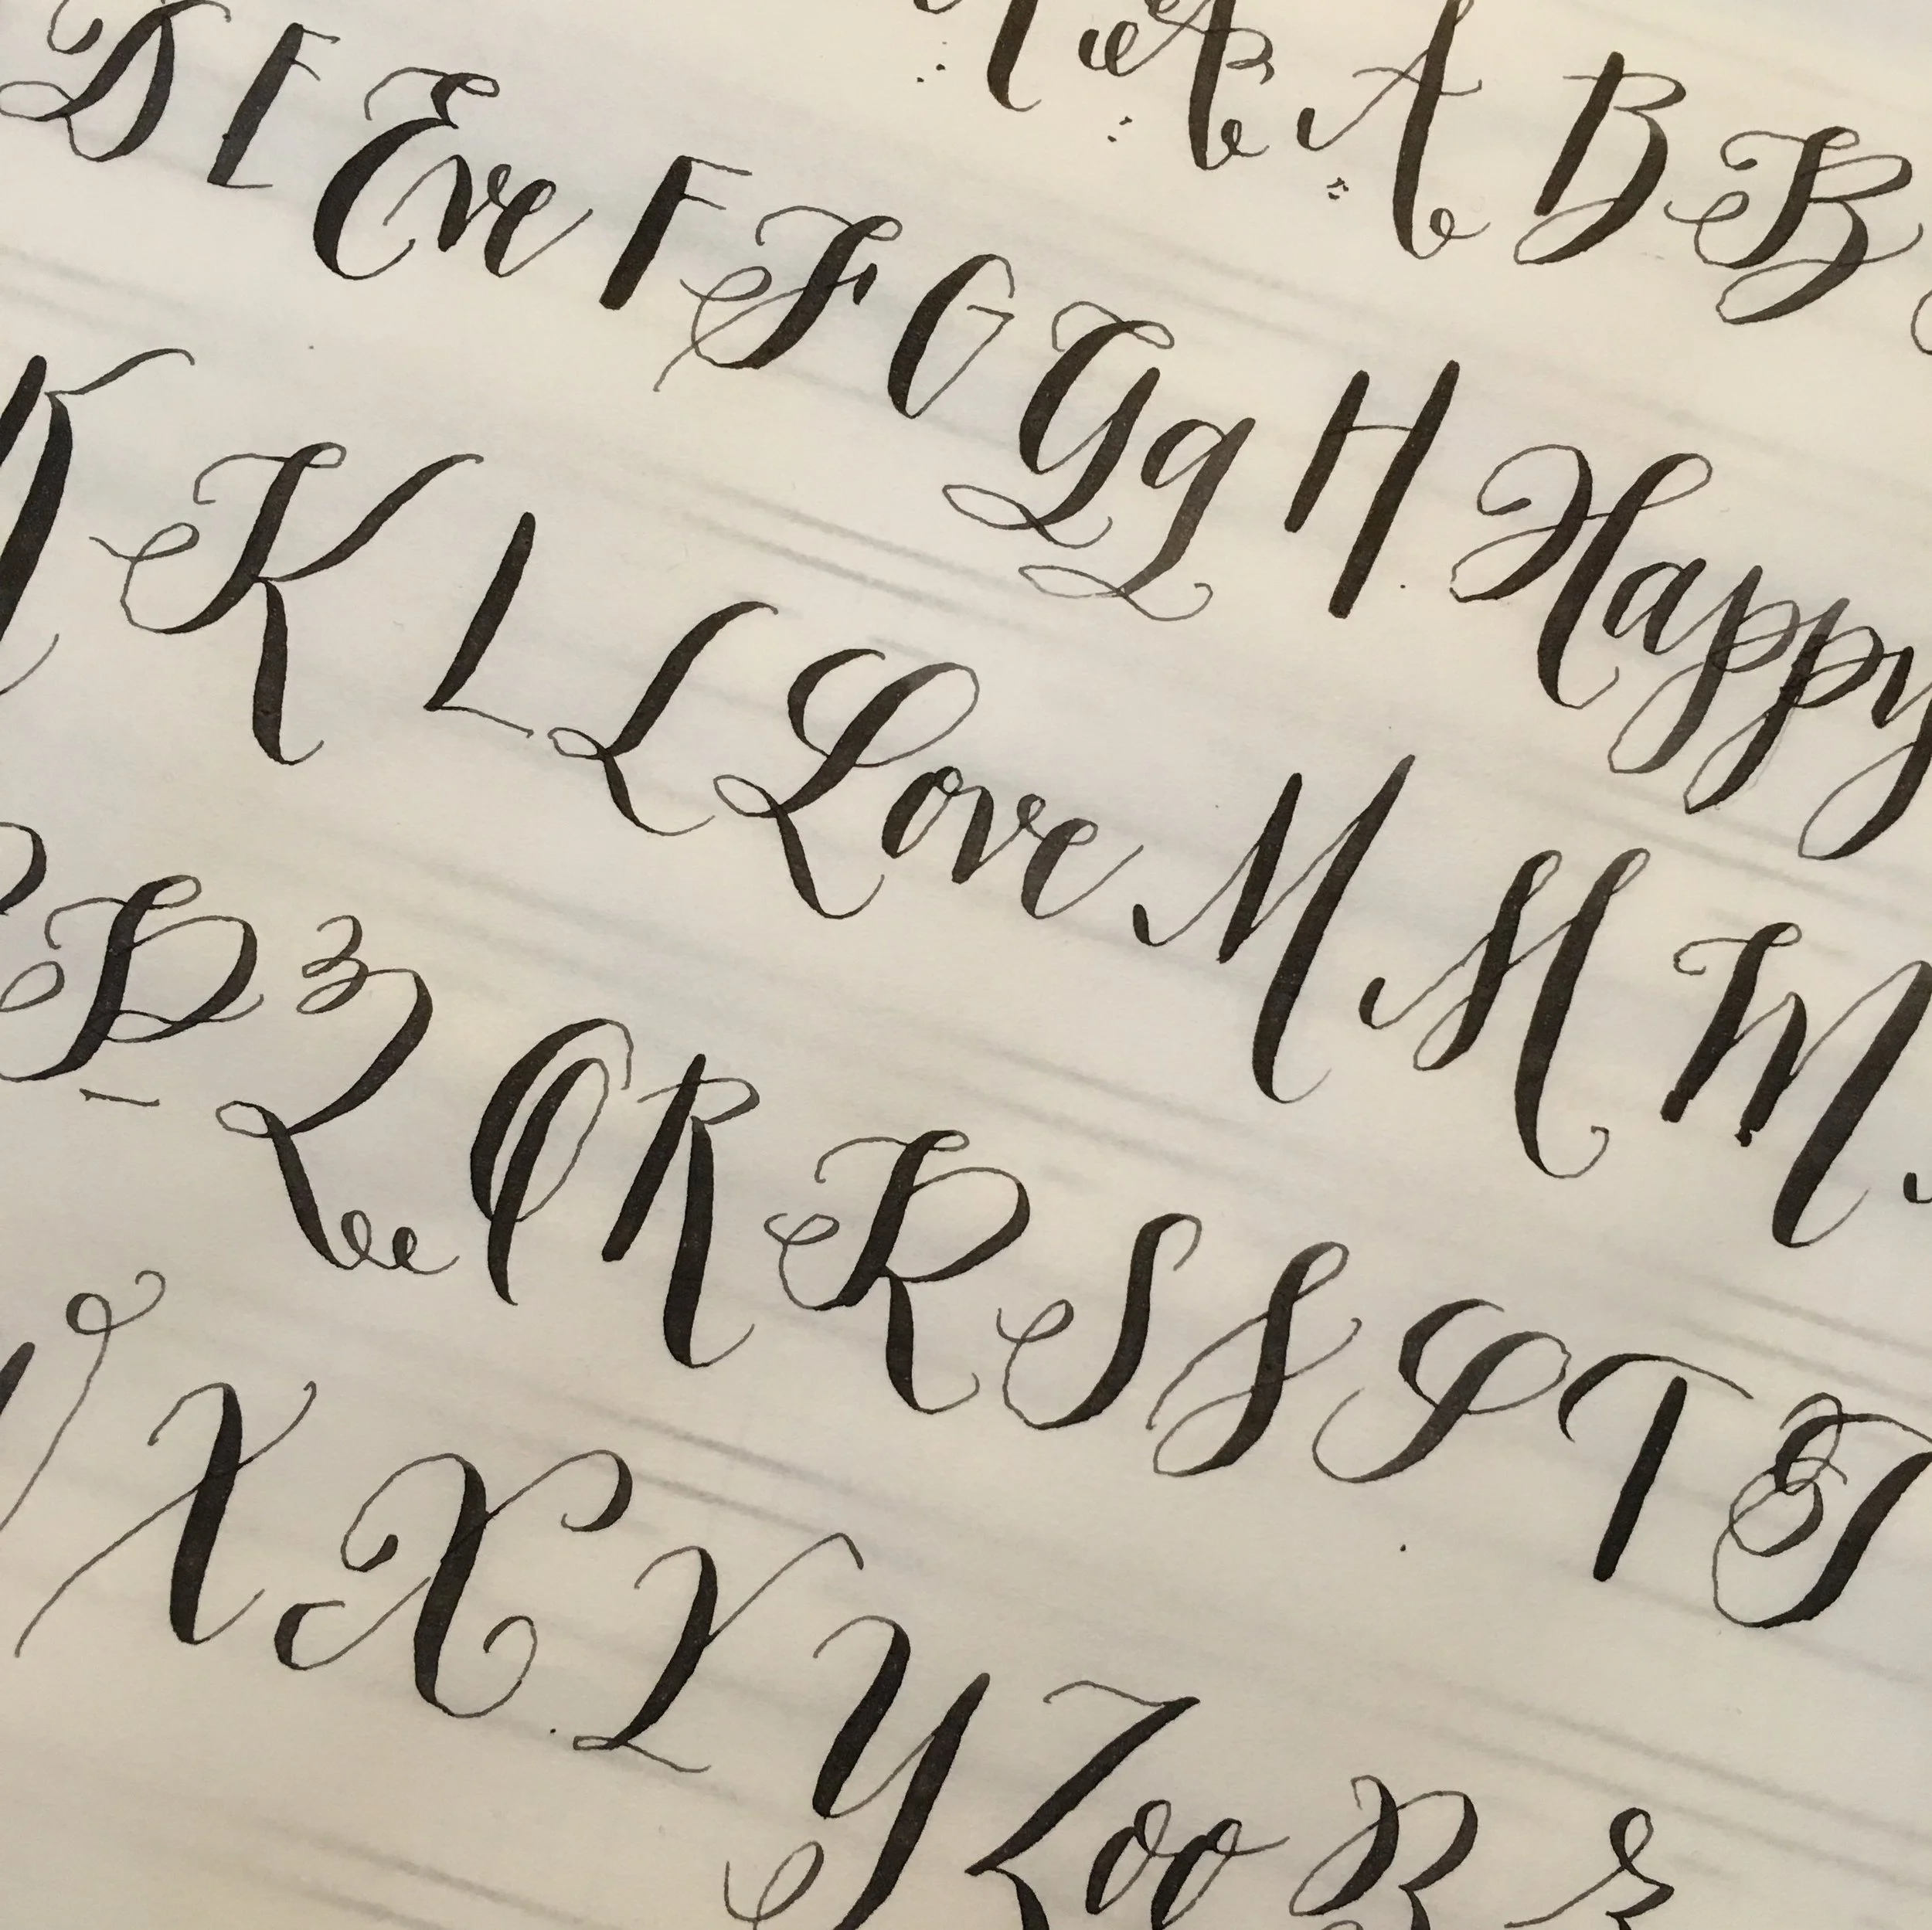 A A A B B
D E Eve F F G Gg H Happy
K K L L Love M M M
P Q Q R R S S S T T
X X Y Y Zoo R